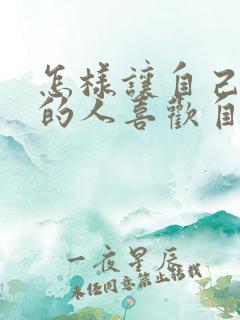 怎樣讓自己
的人喜歡自
一夜星辰
未任同意禁止轉載